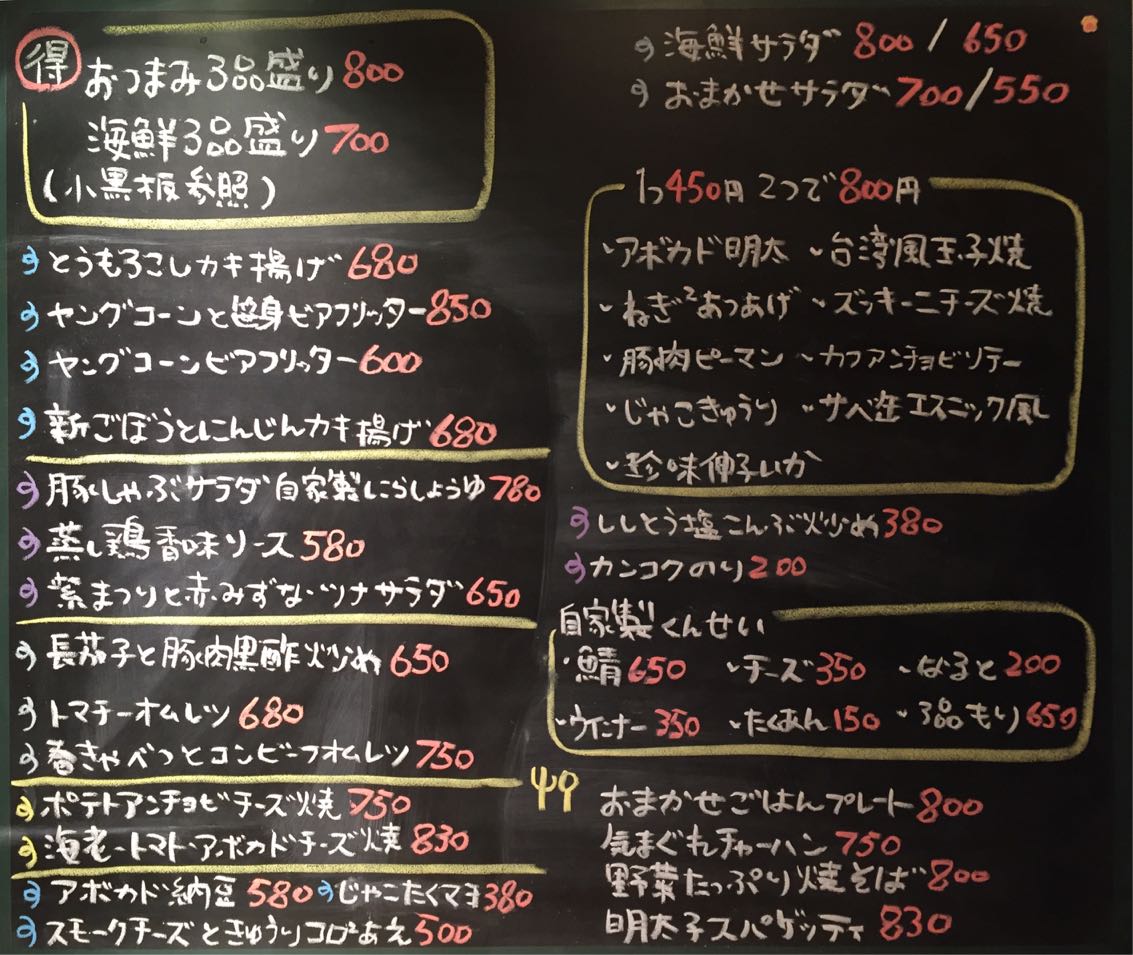 得 おつまみ3品盛り 800
海鮮3品盛り 700
(小黒板参照)
とうもろこしカキ揚げ 680
ヤングコーンと笹身ビアフリッター 850
ヤングコーンビアフリッター 600
新ごぼうとにんじんカキ揚げ 680
豚しゃぶサラダ自家製にらしょうゆ 780
蒸し鶏香味ソース 580
紫まつりと赤みずな・ツナサラダ 650
長茄子と豚肉黒酢炒め 650
トマチーオムレツ 680
春きゃべつとコンビーフオムレツ 750
ポテトアンチョビチーズ焼 750
海老・トマト・アボカドチーズ焼 830
アボカド納豆 580 じゃこたくマヨ 380
スモークチーズときゅうりコロ²あえ 500
海鮮サラダ 800/650
おまかせサラダ 700/550
1つ450円 2つで800円
・アボカド明太 ・台湾風玉子焼
・ねぎ²あつあげ ・ズッキーニチーズ焼
・豚肉ピーマン ・カブアンチョビソテー
・じゃこきゅうり ・サバ缶エスニック風
・珍味伸子いか
ししとう塩こんぶ炒め 380
カンコクのり 200
自家製くんせい
・鯖 650 ・チーズ 350 ・なると 200
・ウインナー 350 ・たくあん 150 ・3品もり 650
おまかせごはんプレート 800
気まぐれチャーハン 750
野菜たっぷり焼そば 800
明太子スパゲッティ 830